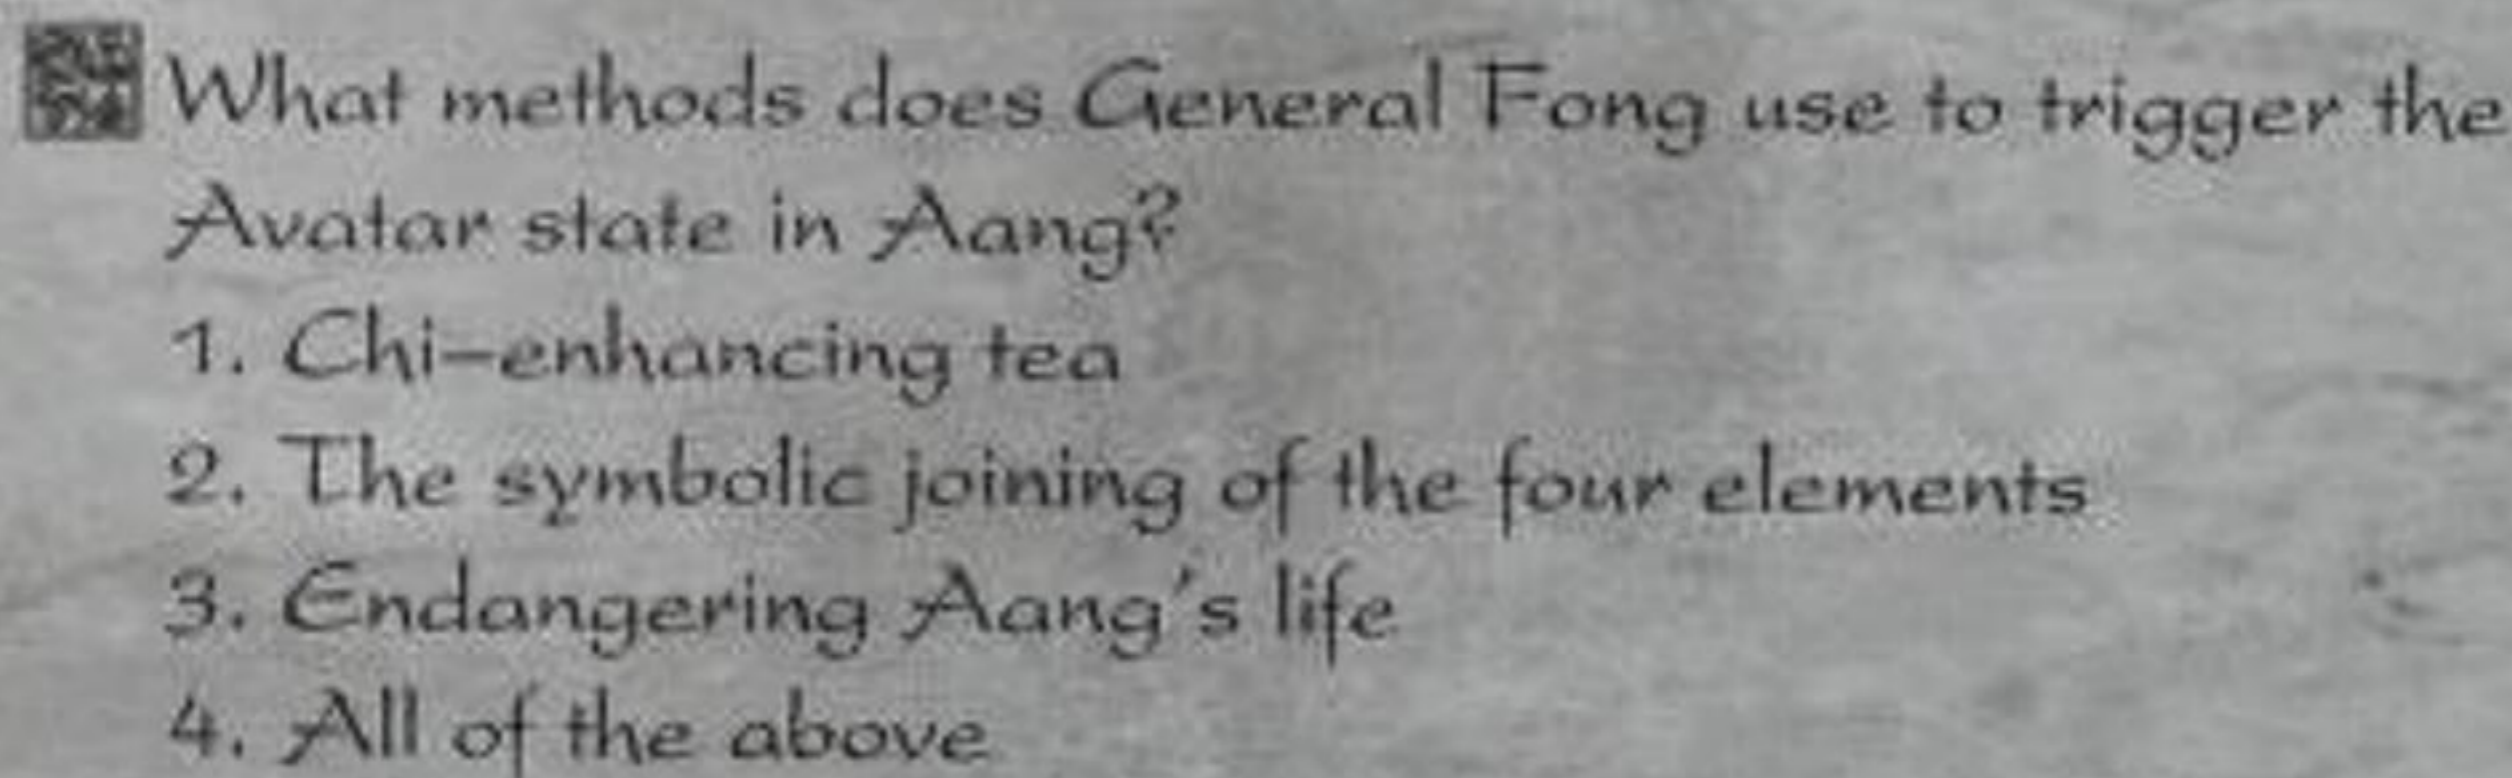 What methods does General Fong use to trigger the
Avatar state in Aang?
1. Chi-enhancing tea
2. The symbolic joining of the four elements
3. Endangering Aang's life
4. All of the above